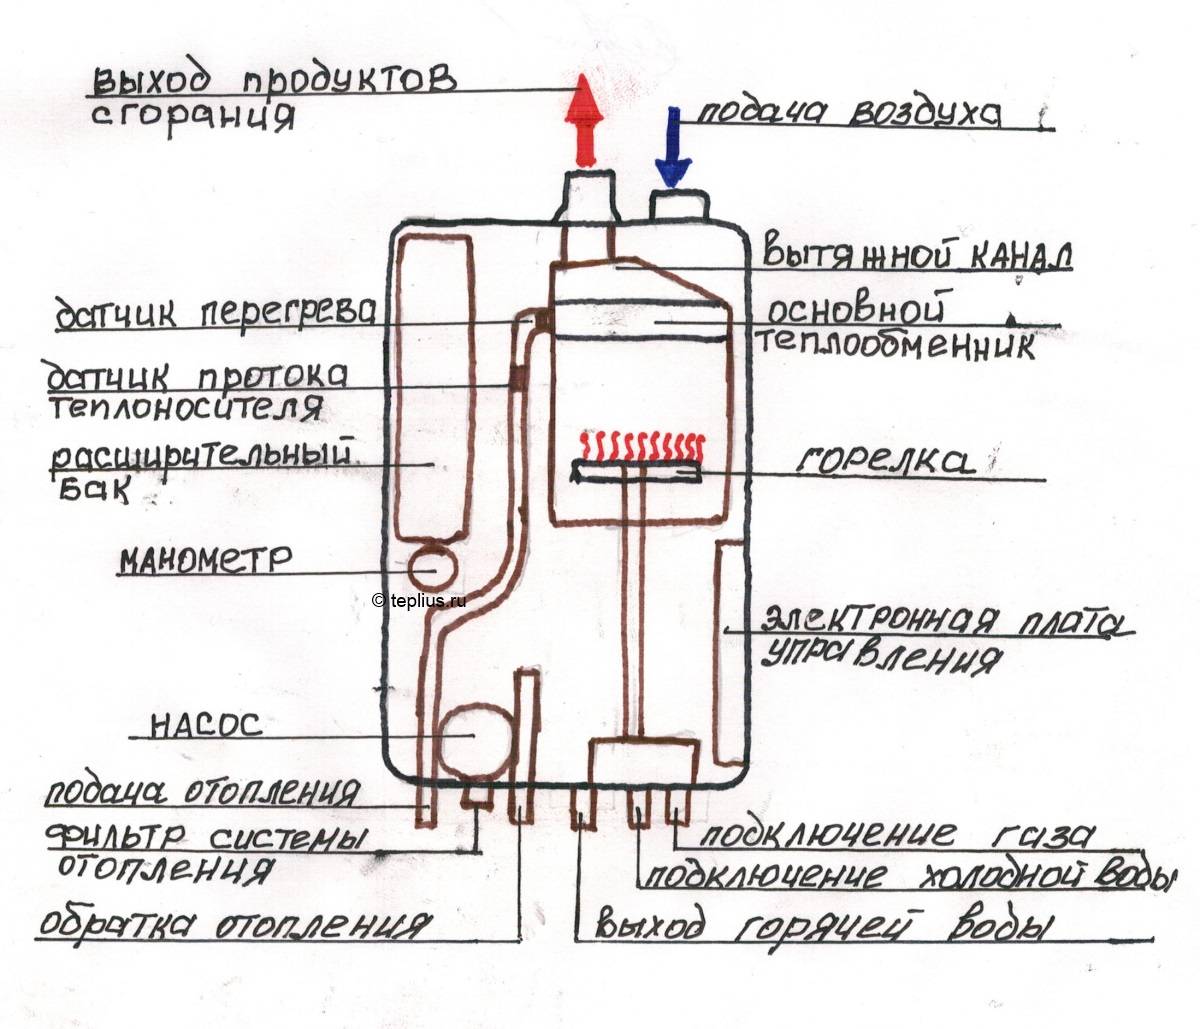 выход продуктов
сгорания
подача воздуха
вытяжной канал
датчик перегрева
основной
теплообменник
датчик протока
теплоносителя
расширительный
бак
горелка
манометр
© teplius.ru
электронная плата
управления
насос
подача отопления
фильтр системы
отопления
подключение газа
подключение холодной воды
обратка отопления
выход горячей воды